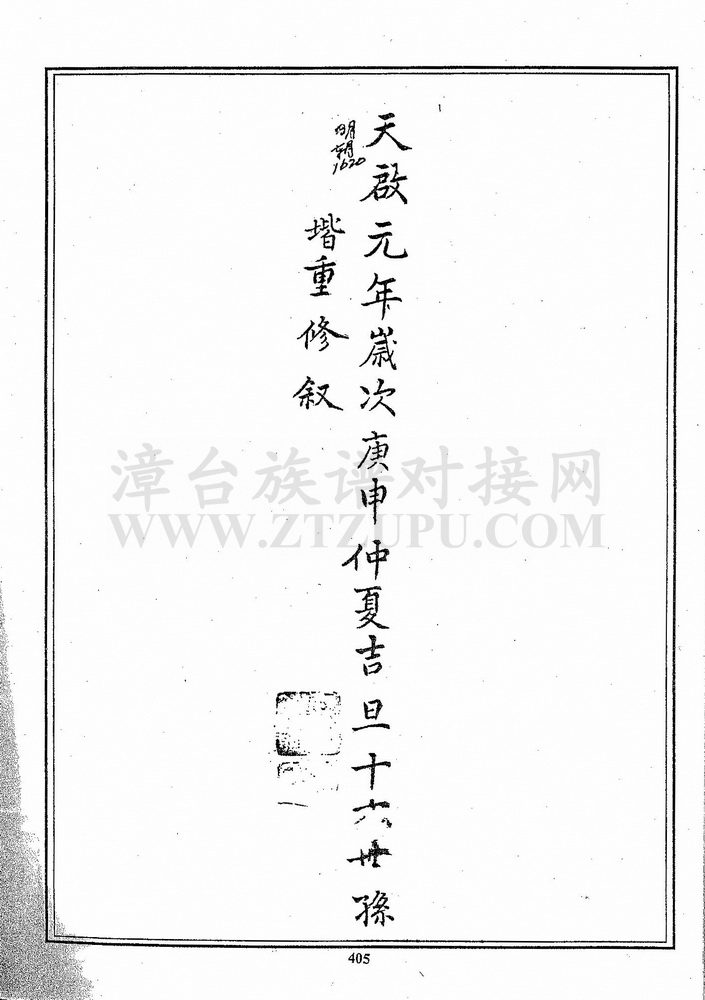 天啟元年歲次庚申仲夏吉旦十六世孫
明朝1620
堦重修叙
漳台族谱对接网
WWW.ZTZUPU.COM
405